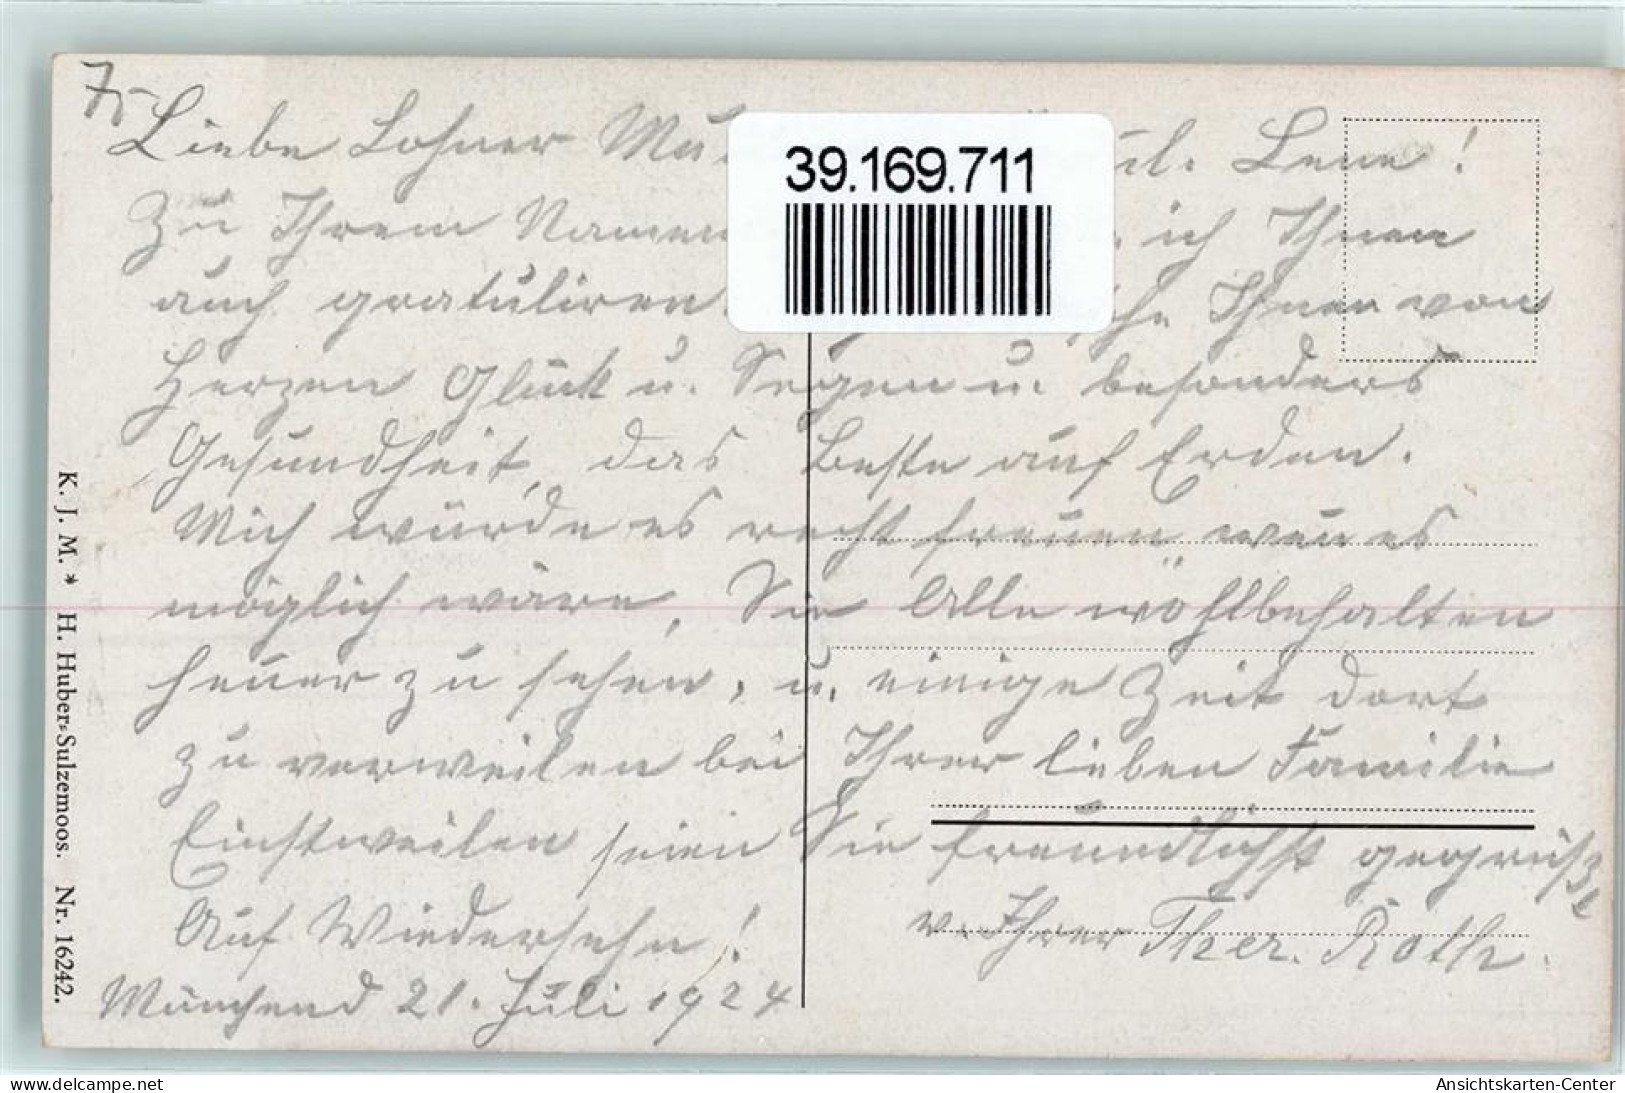 75
Liebe Lohner Mu ül. Lene!
Zu Ihrem Namen ich Ihnen
auch gratuliren che Ihnen von
Herzen Glück u. Segen u. besonders
Gesundheit, das Beste auf Erden.
Mich würde es recht freuen wen es
möglich wäre, Sie Alle wohlbehalten
heuer zu sehen, u. einige Zeit dort
zu verweilen bei Ihrer lieben Familie
Einstweilen seien Sie freundlichst gegrüßt
Auf Wiedersehn! v. Ihrer Ther. Roth.
21. Juli 1924
39.169.711
K. J. M. * H. Huber-Sulzemoos. Nr. 16242.
www.delcampe.net
Ansichtskarten-Center